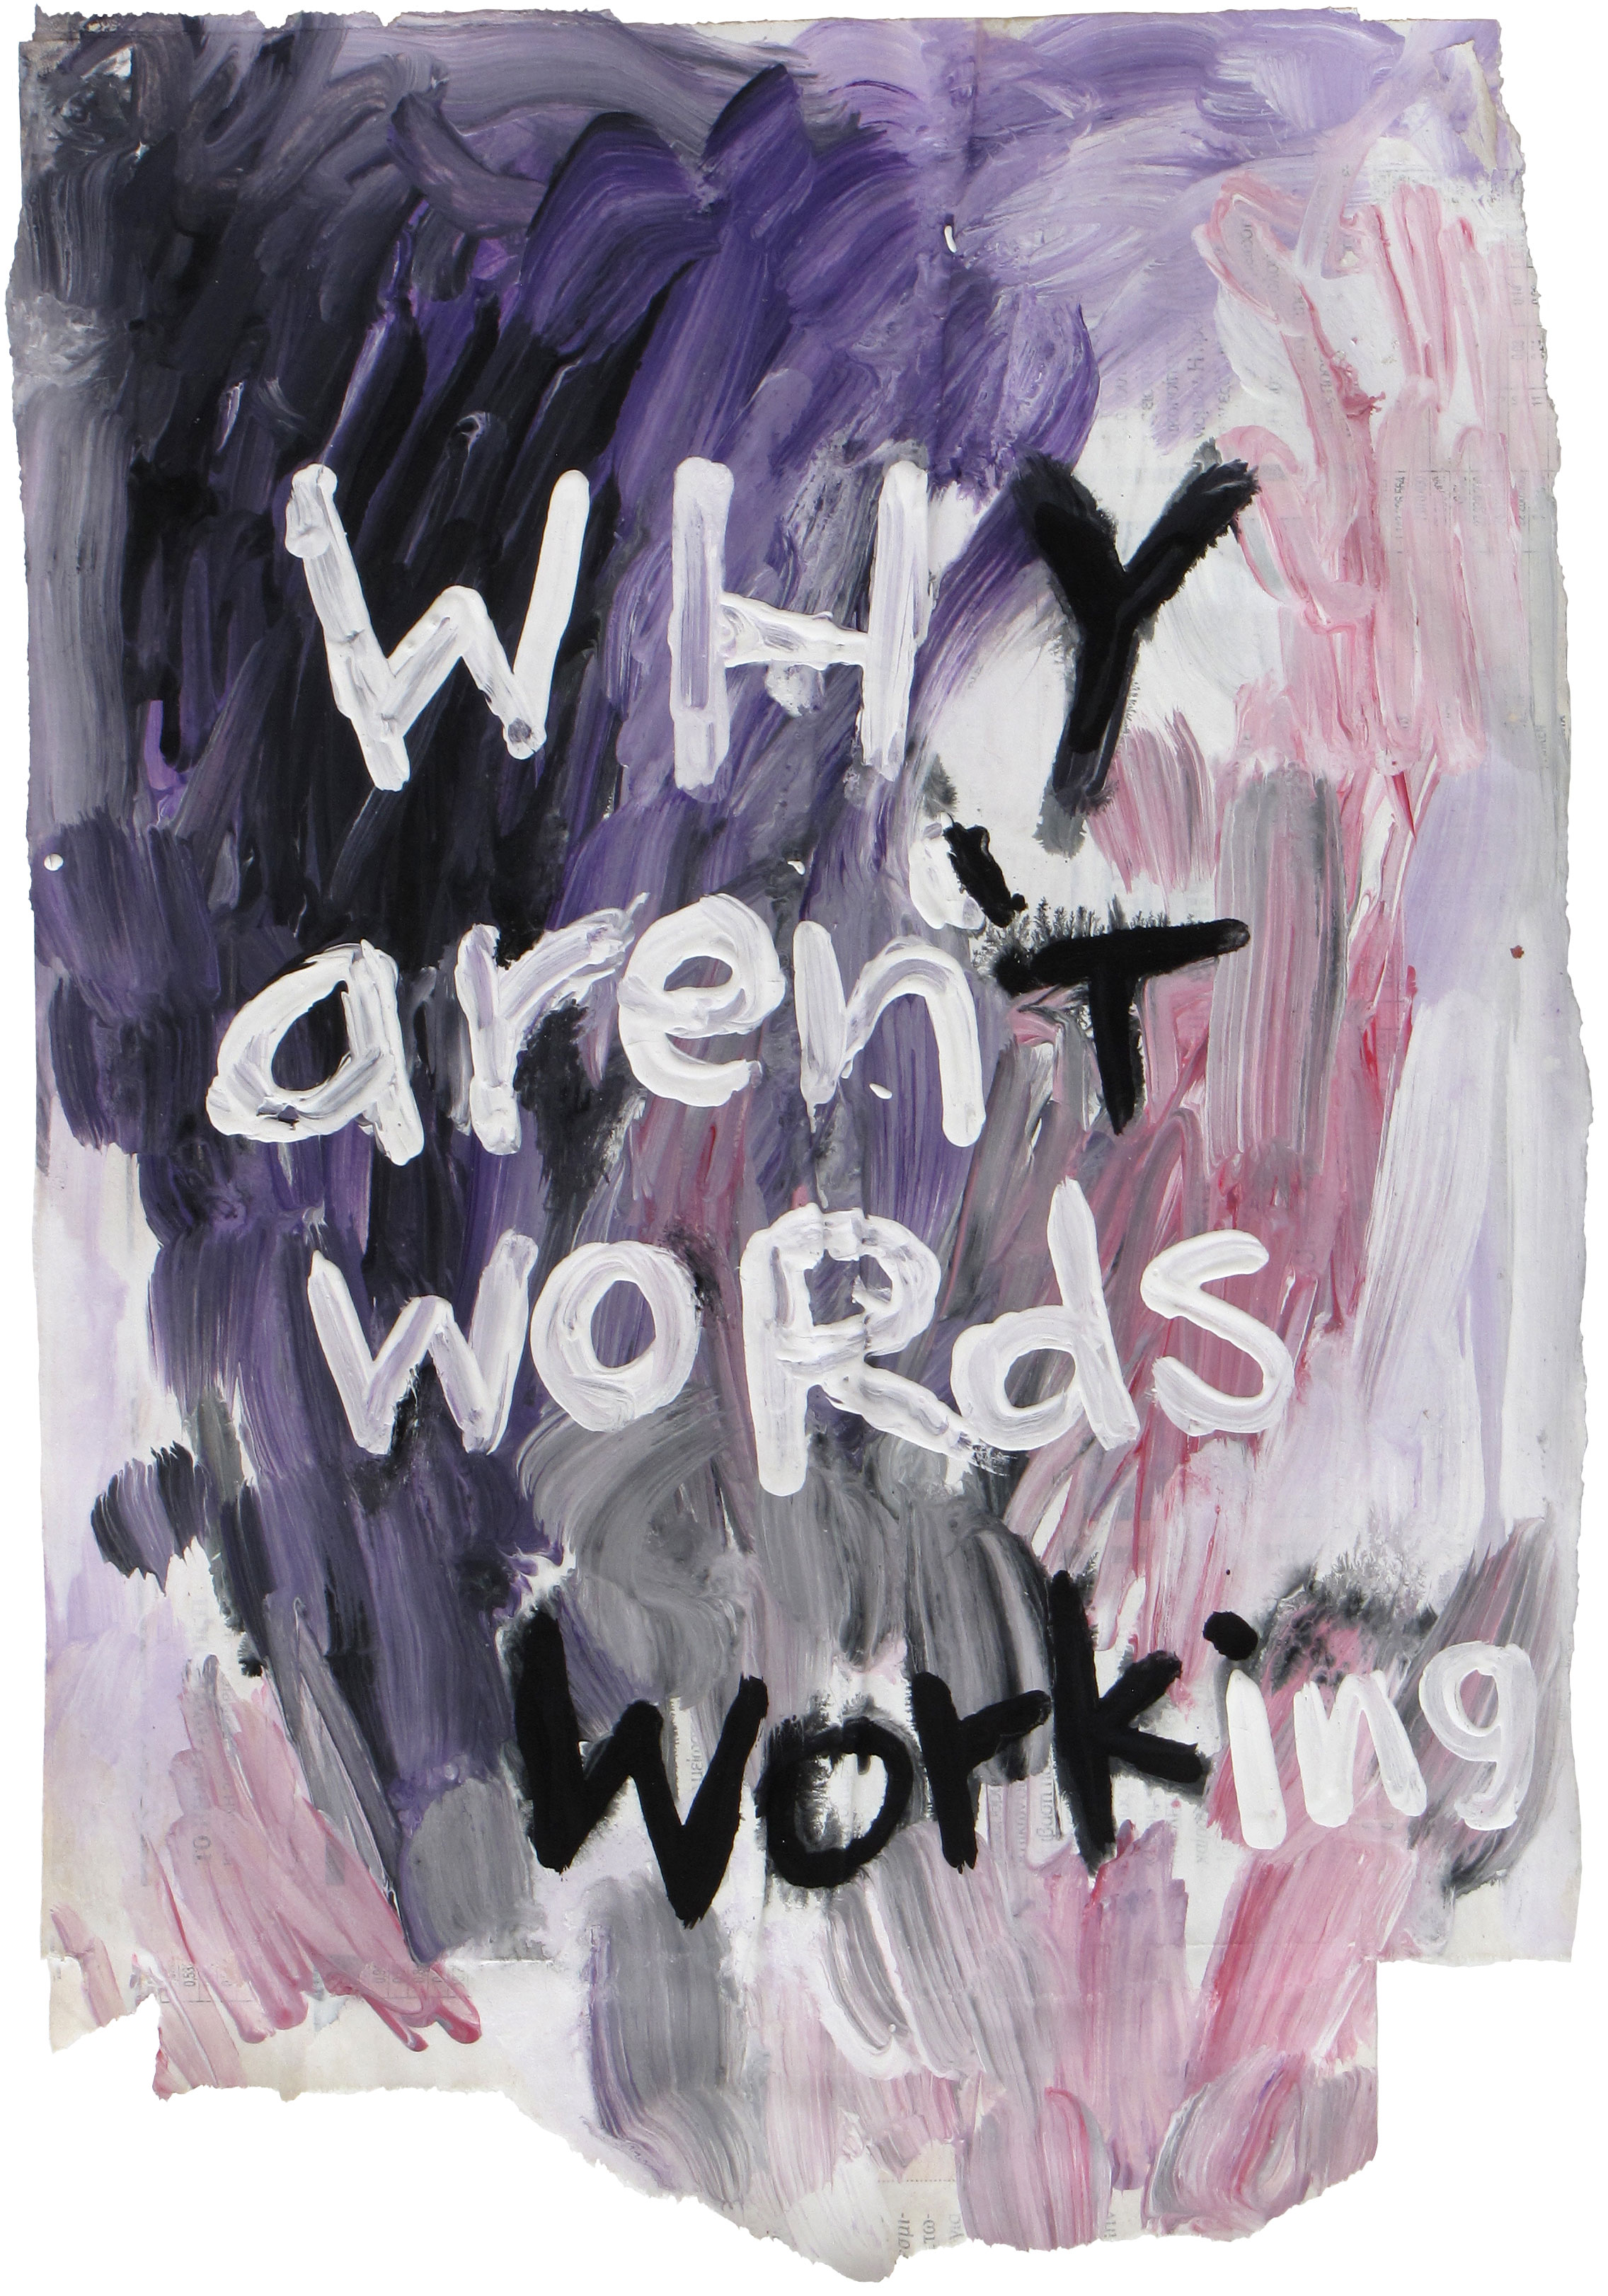 WHY
aren'T
woRds
working